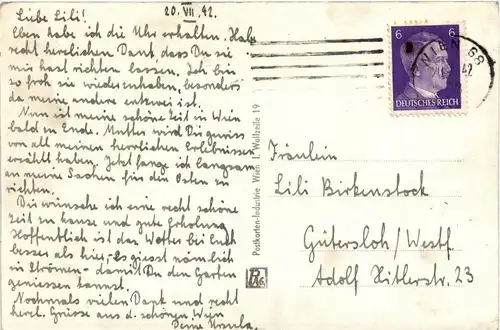 20. VII. 42.
Liebe Lili!
Eben habe ich die Uhr erhalten. Habe
recht herzlichen Dank, dass Du sie
mir hast richten lassen. Ich bin
so froh sie wiederzuhaben, besonders
da meine andere entzwei ist.
Nun ist meine schöne Zeit in Wien
bald zu Ende. Mutter wird Dir gewiss
von all meinen herrlichen Erlebnissen
erzählt haben. Jetzt fange ich langsam
an meine Sachen für den Osten zu
richten.
Dir wünsche ich eine recht schöne
Zeit zu hause und gute Erholung
Hoffentlich ist das Wetter bei Euch
besser als hier, es giesst nämlich
in Strömen - damit Du den Garten
geniessen kannst.
Nochmals vielen Dank und recht
herzl. Grüsse aus d. schönen Wien
Deine Ursula.
Postkarten-Industrie Wien I, Wollzeile 19
6 6
DEUTSCHES REICH
WIEN 68
42
Fräulein
Lili Birkenstock
Gütersloh/Westf.
Adolf Hitlerstr. 23